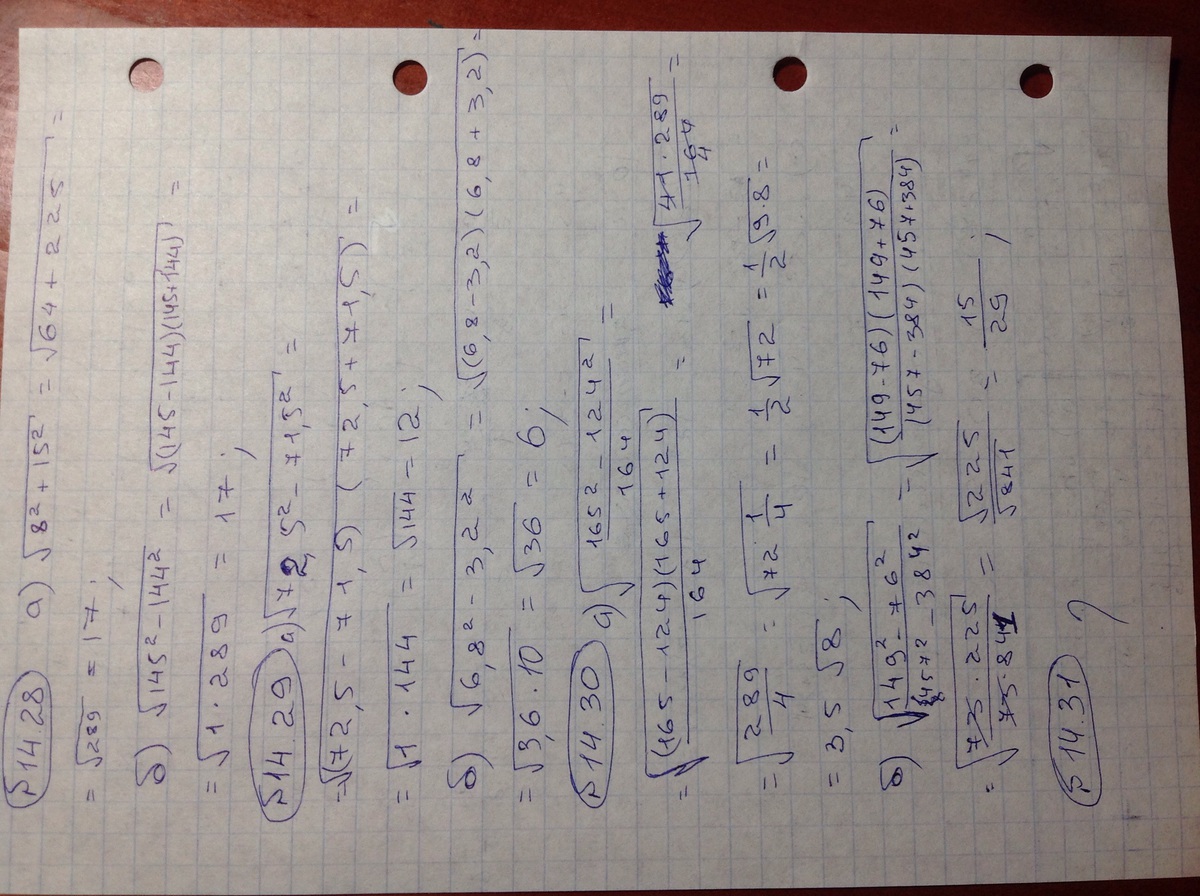 № 14.28 а) √(8² + 15²) = √(64 + 225) =
= √289 = 17;
б) √(145² - 144²) = √((145 - 144)(145 + 144)) =
= √(1 · 289) = 17;
№ 14.29 а) √(72,5² - 71,5²) =
= √((72,5 - 71,5)(72,5 + 71,5)) =
= √(1 · 144) = √144 = 12;
б) √(6,8² - 3,2²) = √((6,8 - 3,2)(6,8 + 3,2)) =
= √(3,6 · 10) = √36 = 6;
№ 14.30 а) √((165² - 124²)/164) =
= √((165 - 124)(165 + 124)/164) = √(41 · 289/164) =
4
= √(289/4) = √(72 1/4) = 1/2 √72 = 1/2 √(9·8) =
= 3,5 √8;
б) √((149² - 76²)/(457² - 384²)) = √((149 - 76)(149 + 76)/((457 - 384)(457 + 384))) =
= √(73 · 225/(73 · 841)) = √225/√841 = 15/29;
№ 14.31 ?